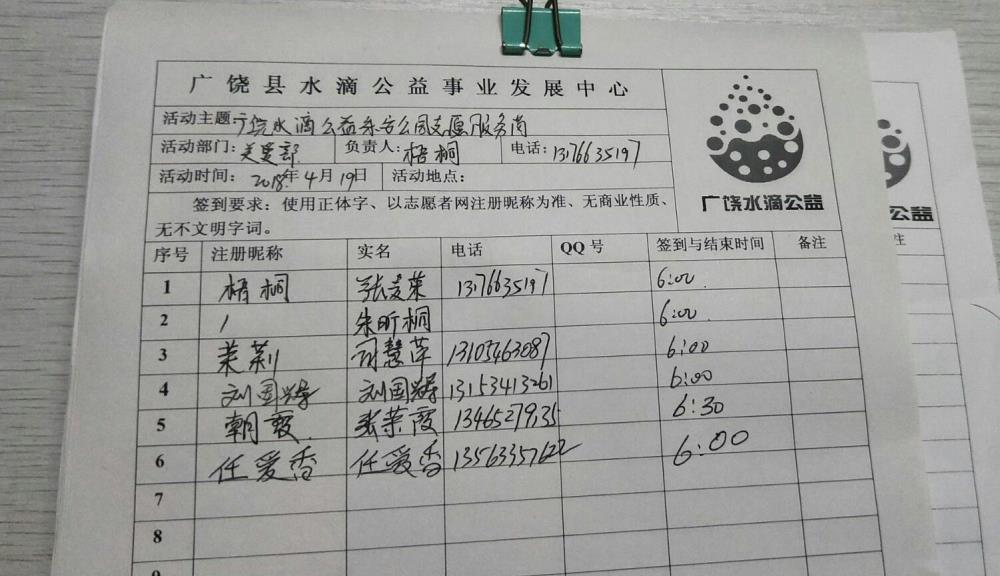 广饶县水滴公益事业发展中心
活动主题:广饶水滴公益东方公司志愿服务岗
活动部门:关爱部 负责人:梧桐 电话:13176635197
活动时间:2018年4月19日 活动地点:
签到要求:使用正体字、以志愿者网注册昵称为准、无商业性质、
无不文明字词。
广饶水滴公益
序号 注册昵称 实名 电话 QQ号 签到与结束时间 备注
1 梧桐 张爱荣 13176635197 6:00
2 / 朱昕桐 6:00
3 茉莉 司慧萍 13105463087 6:00
4 刘国辉 刘国辉 13153413261 6:00
5 朝霞 张荣霞 13465279135 6:30
6 任爱香 任爱香 13563357622 6:00
7
8
9
公益
注